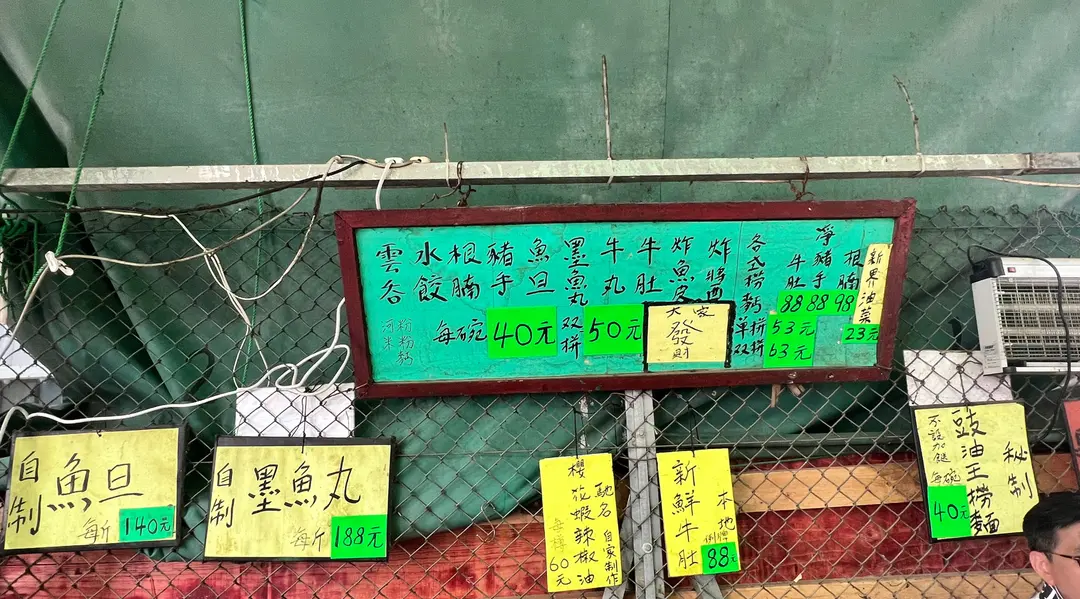 雲吞
水餃
根腩
豬手
魚旦
墨魚丸
牛丸
牛肚
炸魚皮
各式撈麪
淨
牛肚
豬手
根腩
88
88
98
新界油菜
23元
河粉
米粉
每碗
40元
双拼
50元
大家
發
財
单拼
53元
双拼
63元
自制
魚旦
每斤
140元
自制
墨魚丸
每斤
188元
馳名
自家制作
櫻花蝦辣椒油
60元
新鮮牛肚
本地牌
例
88元
秘制
豉油王撈麵
不設加餸
每碗
40元